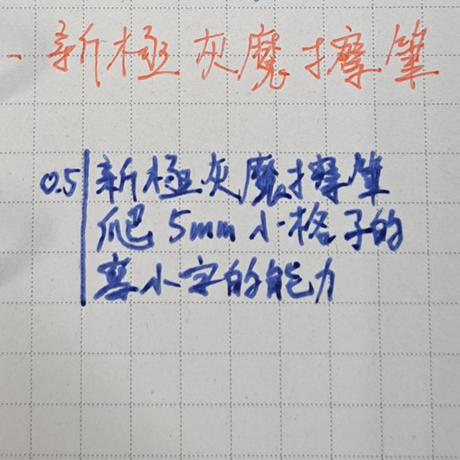 - 新極灰魔擦筆
0.5 新極灰魔擦筆
爬 5mm 小格子的
寫小字的能力